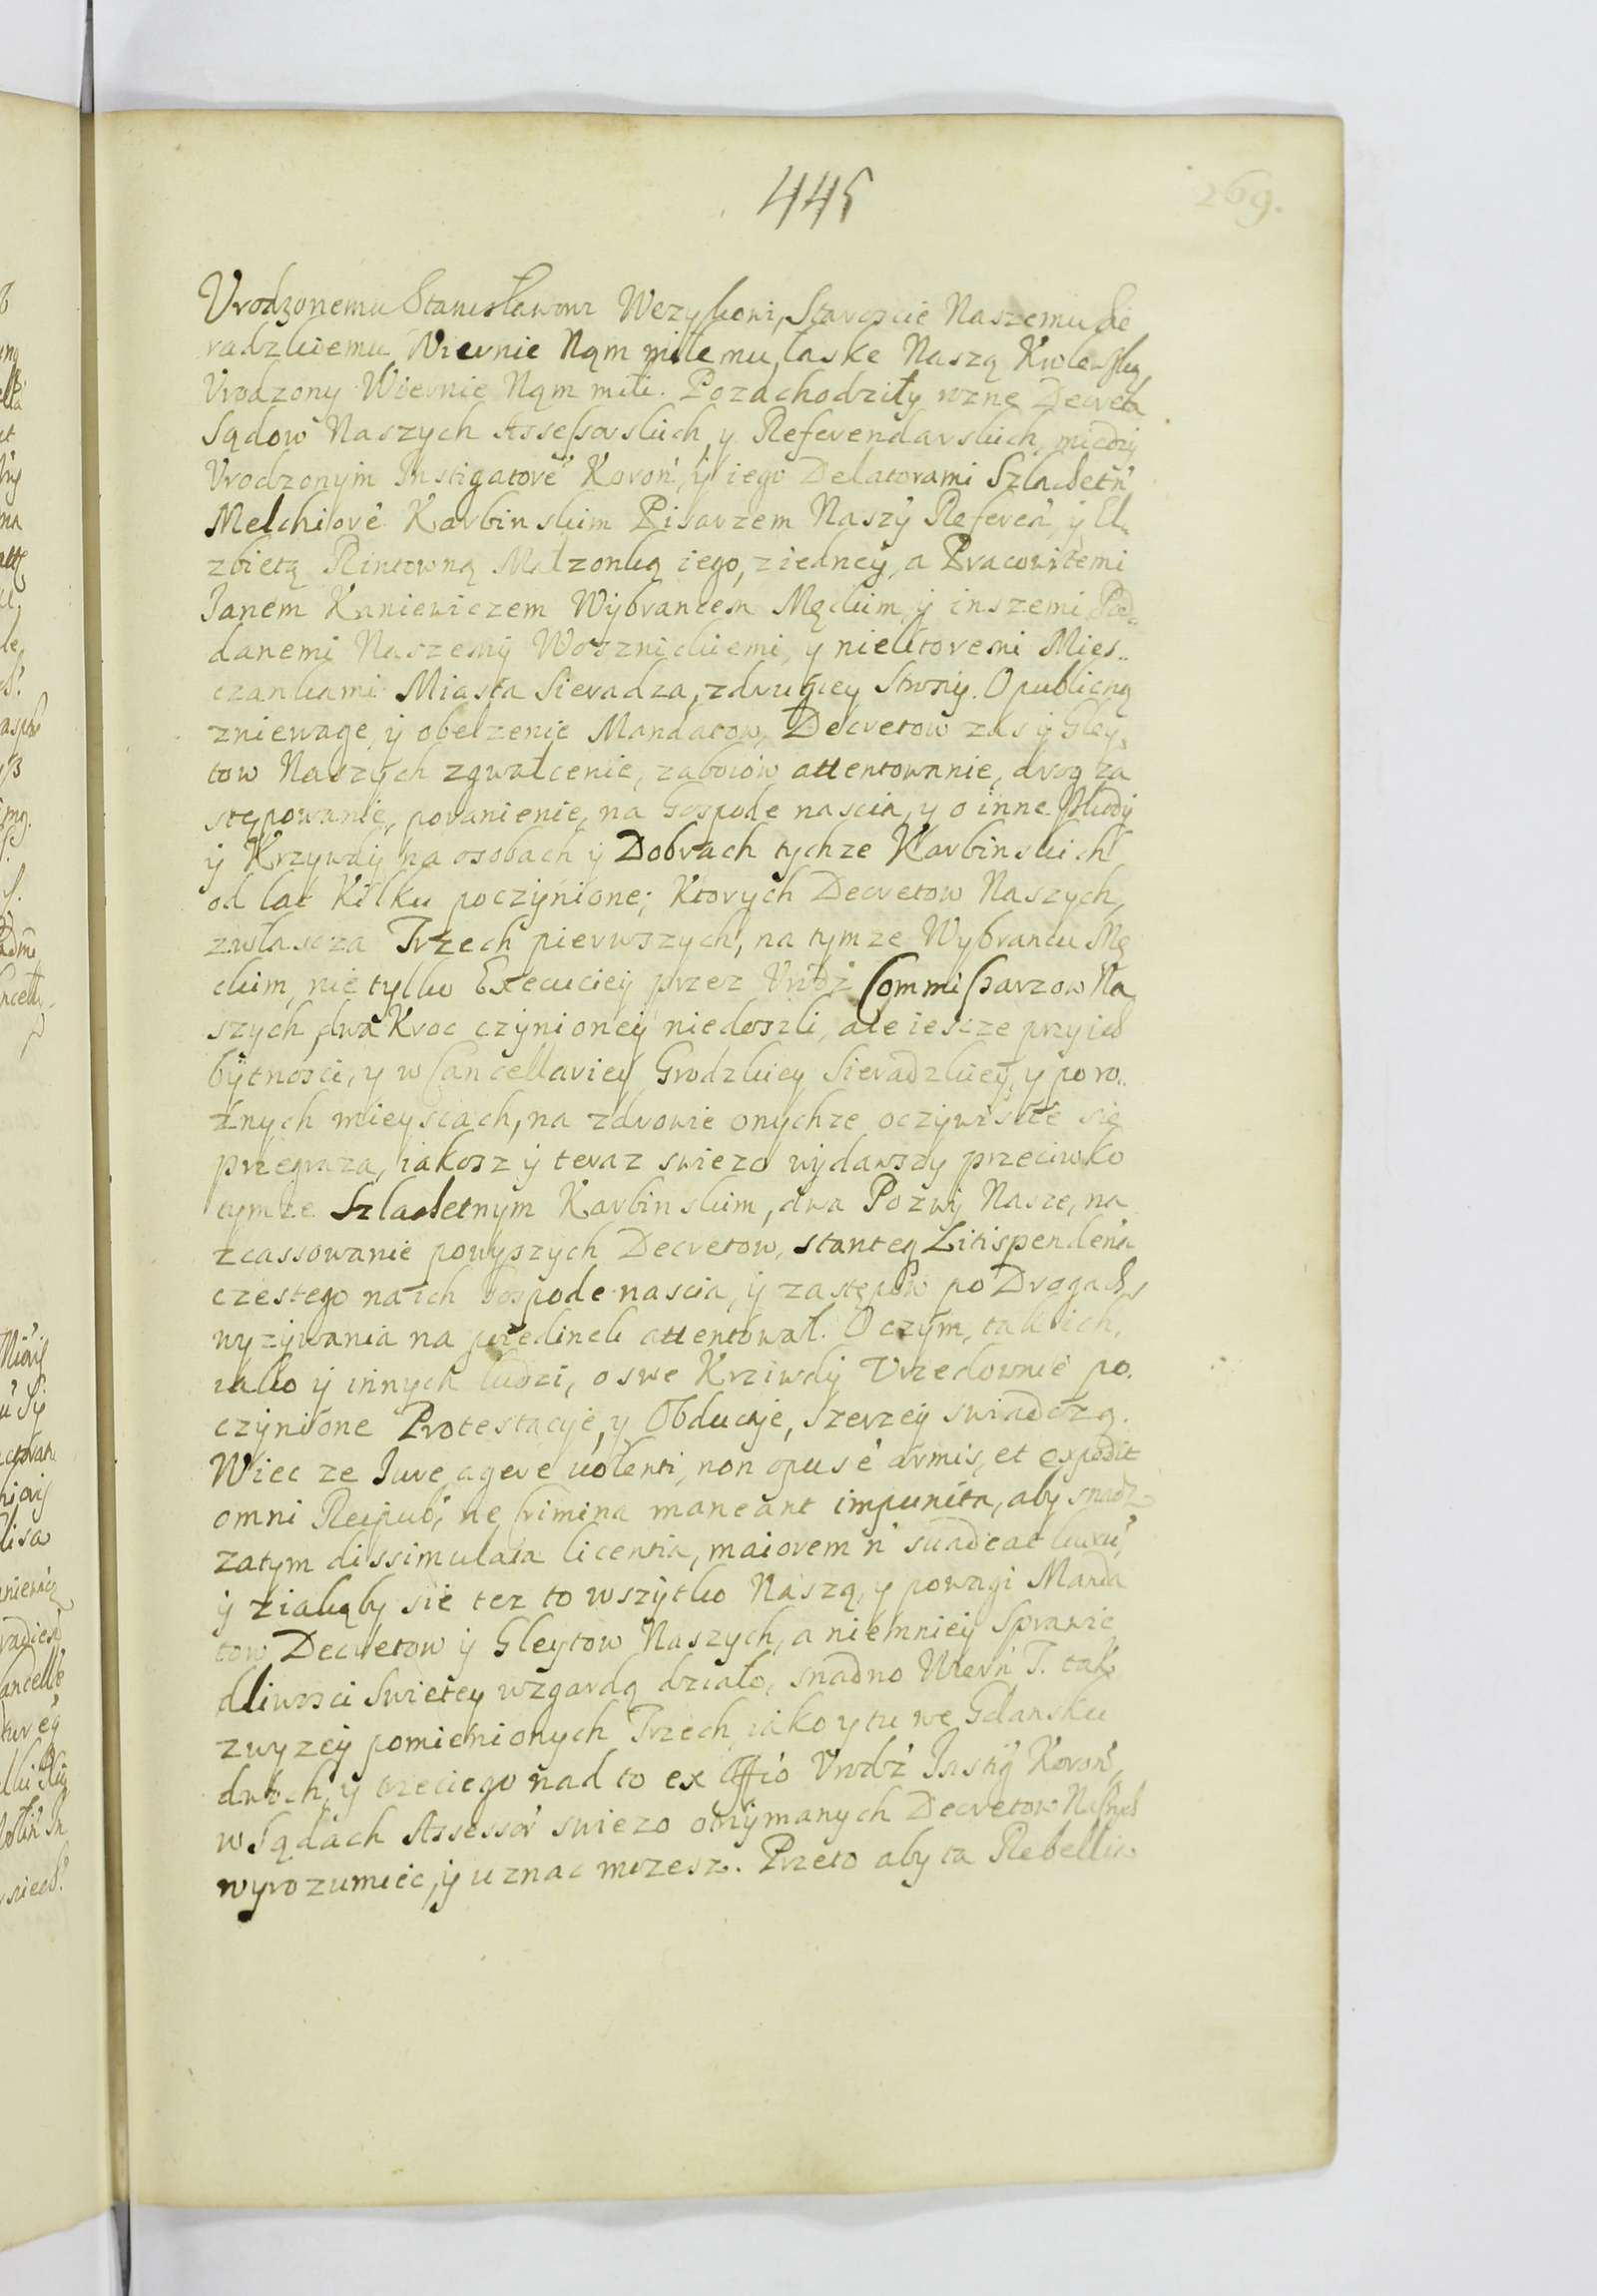 445
269.
Vrodzonemu Stanisławowi Wezykowi, Staroscie Naszemu Sie
radzkiemu Wiernie Nąm miłemu, łaske Naszą Krolewską,
Vrodzony Wiernie Nąm miłi. Pozachodziły rozne Decreta
Sądow Naszych Assessorskich, y Referendarskich, miedzy
Vrodzonym Instigatore Koron, y iego Delatorami Szlachetn
Melchiore Karbinskim Pisarzem Naszy Referen, y El
zbietą Rintowną Małzonką iego, ziedney, a Pracowitemi
Janem Kaniewiczem Wybrancem Męckim, y inszemi Pod
danemi Naszemy Wozznickiemi, y niektoremi Mies..
czankami Miasta Sieradza, zdrugiey Strony. O publiczną
zniewage, y obelzenie Mandatow, Decretow zas y Gley
tow Naszych zgwałcenie, zaboiow attentowanie, drog za
stępowanie, poranienie, na Gospode nascia, y o inne szkody
y Krzywdy na osobach y Dobrach tychze Karbinskich
od lat Kilku poczynione; Ktorych Decretow Naszych,
zwłascza Trzech pierwszych, na tymze Wybrancu Mę
ckim, nie tylko Execuciey przez Vrodz Commissarzow Na
szych dwa Kroc czynioney niedoszli, ale iescze przy ich
bytnosci, y w Cancellariey Grodzkiey Sieradzkiey, y poro..
znych mieyscach, na zdrowie onychze oczywiscie się
przegraza, iakosz y teraz swiezo wydawszy przeciwko
tymze Szlachetnym Karbinskim, dwa Pozwy Nasze, na
zcassowanie powyszych Decretow, stanteq Litispenden
czestego na ich Gospode nascia, y zastępow po Drogach,
wyzywania na poiedinek attentował. O czym, tak ich,
iako y innych ludzi, o swe Krziwdy Vrzedownie po.
czynione Protestacye, y Obducye, szerzey swiadczą.
Wiec ze Jure agere uolenti, non opus e armis, et expedit
omni Reipub, ne Crimina maneant impunita, aby snadz
zatym dissimulata licentia, maiorem n suadeat luxu,
y ziakąby sie tez to wszytko Naszą, y powagi Manda
tow Decretow y Gleytow Naszych, a niemniey Sprawie
dliwosci Swietey wzgardą działo, snadno Wiern T. tak
zwyzey pomienionych Trzech, iako y tu we Gdansku
dwoch, y trzeciego nad to ex Offio Vrodz Instig Koron
w Sądach Assessor swiezo otrzymanych Decretow Naszych
wyrozumiec, y uznac mozesz. Przeto aby ta Rebellia